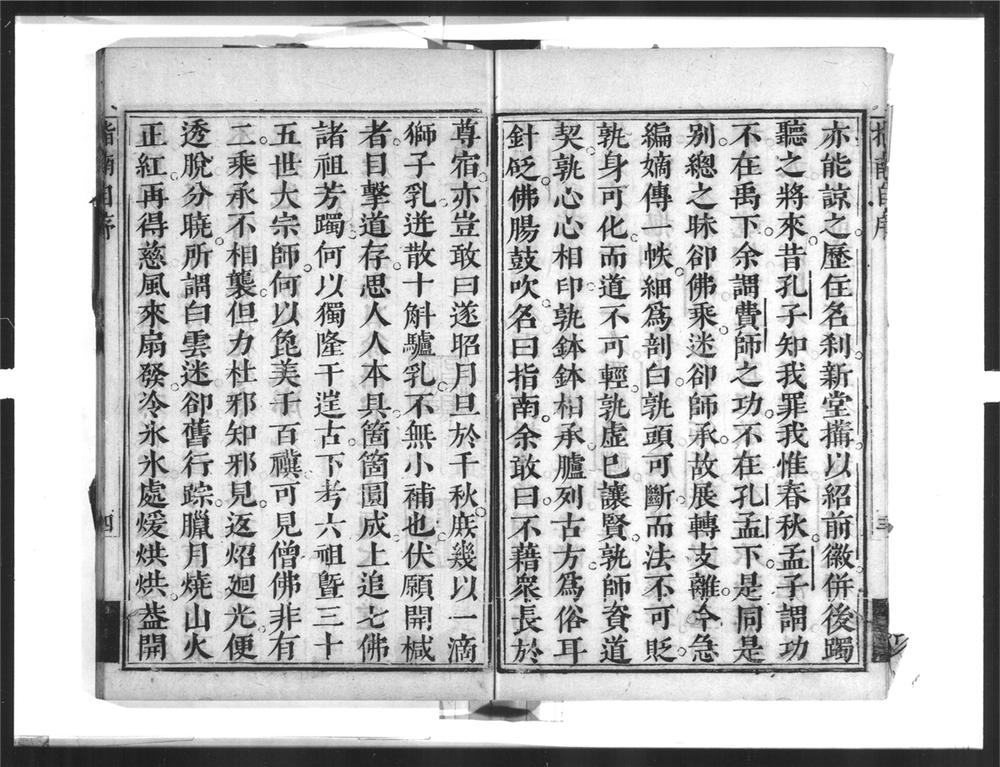 亦能諒之歷住名刹新堂搆以紹前徽併後躅
聽之將來昔孔子知我罪我惟春秋孟子謂功
不在禹下余謂費師之功不在孔孟下是同是
別總之昧卻佛乘迷卻師承故展轉支離今急
編嫡傳一帙細爲剖白孰頭可斷而法不可貶
孰身可化而道不可輕孰虛已讓賢孰師資道
契孰心心相印孰鉢鉢相承臚列古方爲俗耳
針砭佛腸鼓吹名曰指南余敢曰不藉衆長於
尊宿亦豈敢曰遂昭月旦於千秋庶幾以一滴
獅子乳迸散十斛驢乳不無小補也伏願開椷
者目擊道存思人人本具箇箇圓成上追七佛
諸祖芳躅何以獨隆于逞古下考六祖曁三十
五世大宗師何以毘美于百禩可見僧佛非有
二乘承不相襲但力杜邪知邪見返炤廻光便
透脫分曉所謂白雲迷卻舊行踪臘月燒山火
正紅再得慈風來扇發冷氷氷處煖烘烘葢開
指南自序
三
指南自序
四